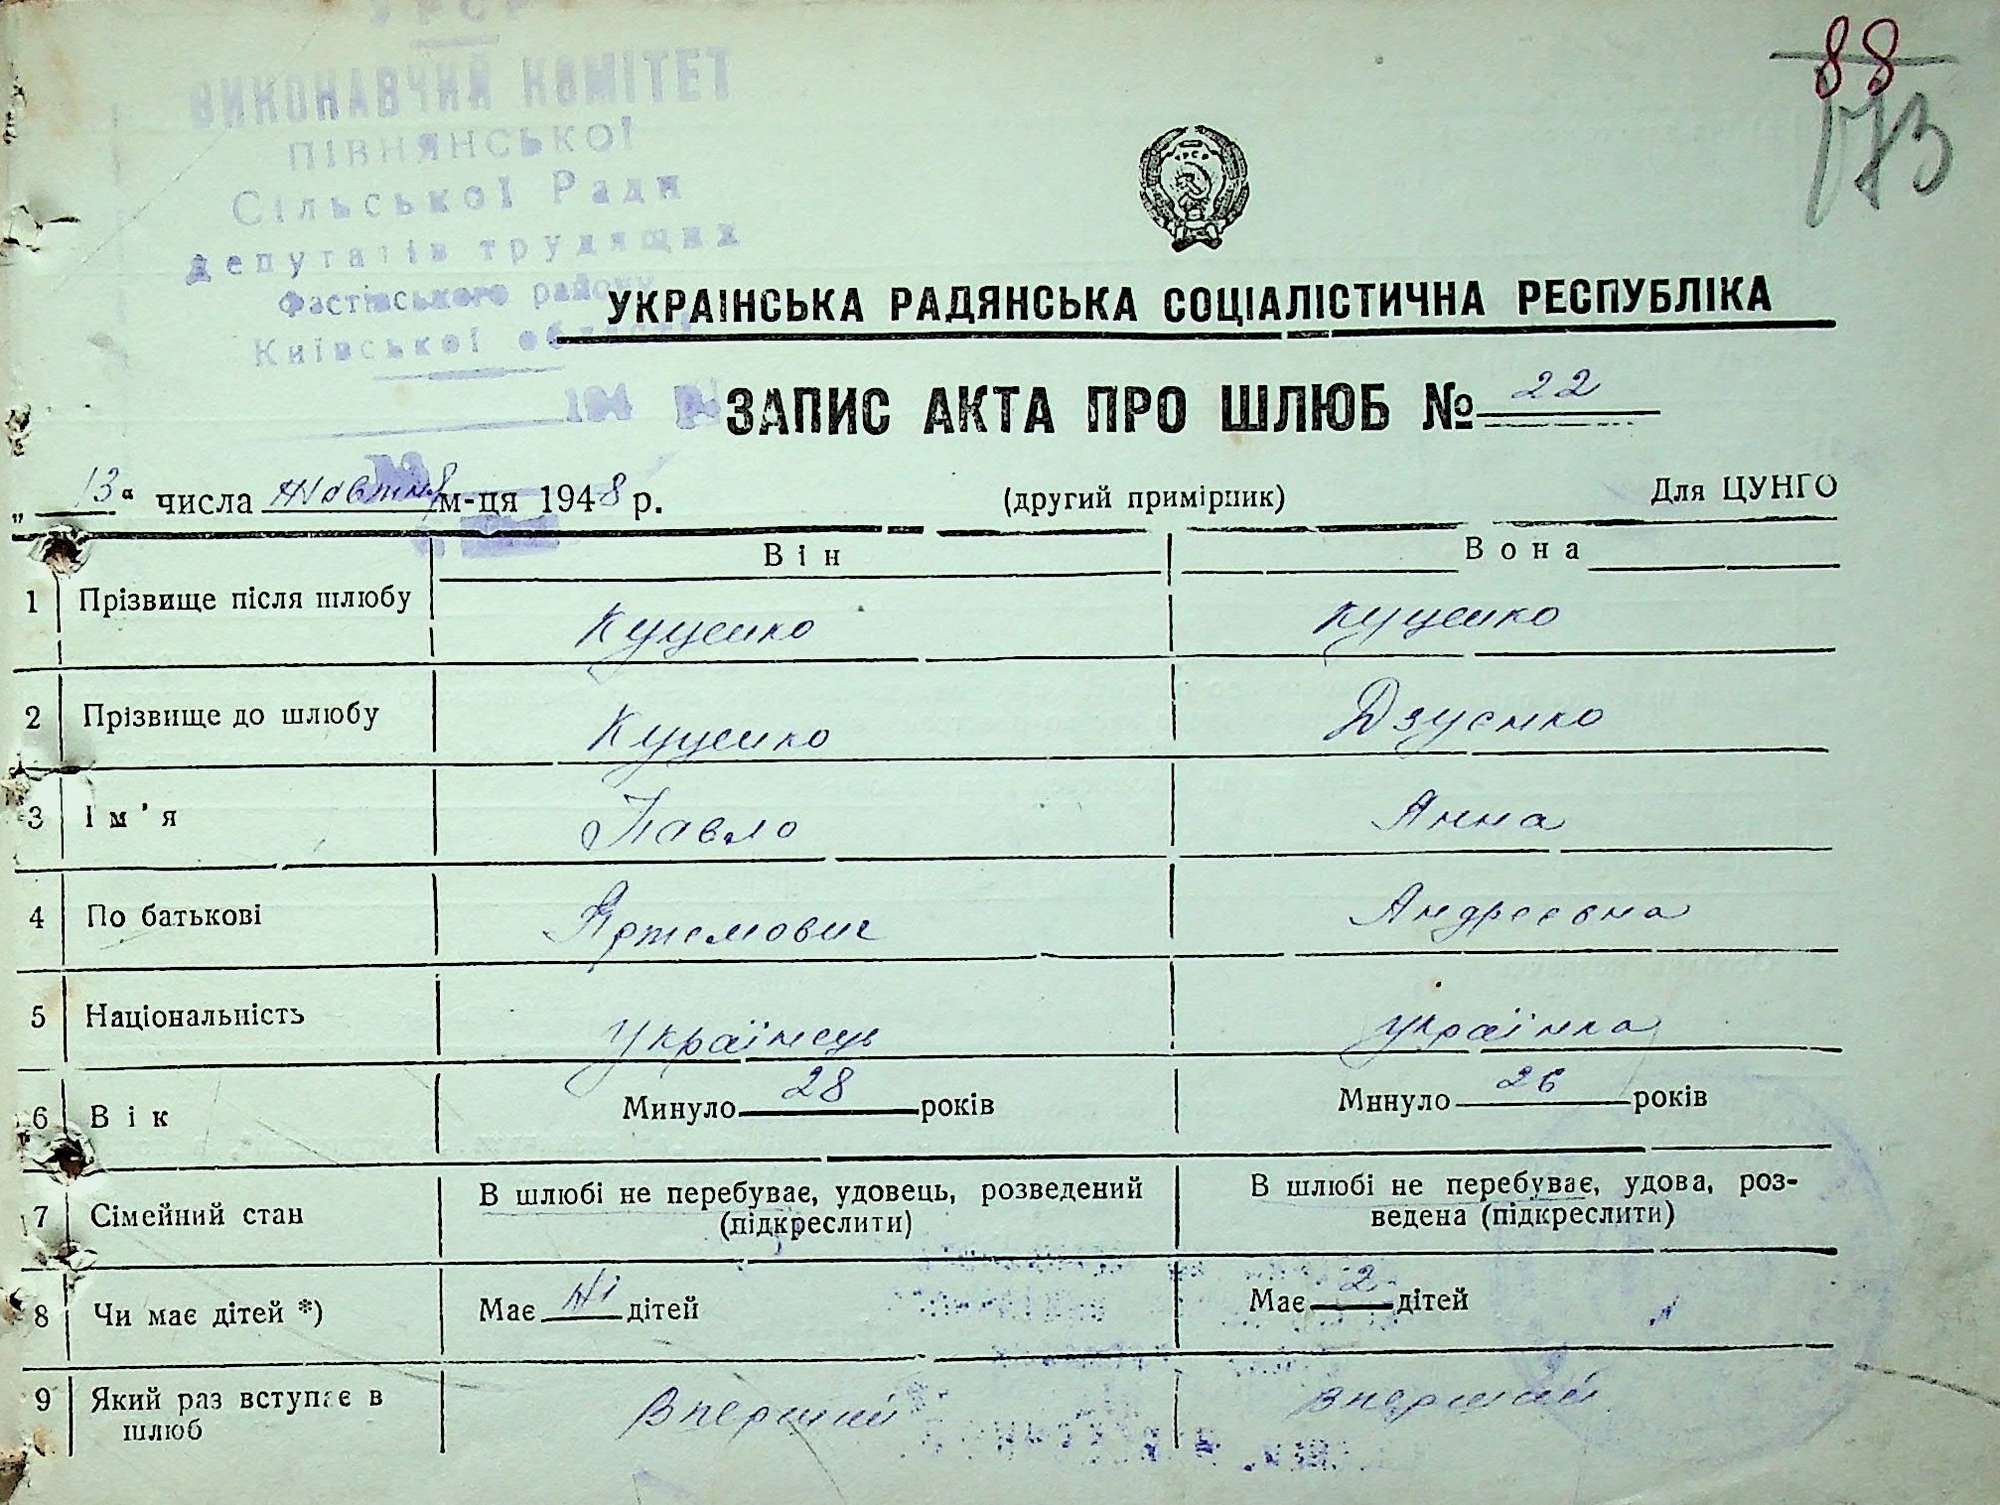 УРСР
ВИКОНАВЧИЙ КОМІТЕТ
ПІВНЯНСЬКОЇ
Сільської Ради
депутатів трудящих
Фастівського району
Київської області
194 р.
88
173
УРСР
УКРАЇНСЬКА РАДЯНСЬКА СОЦІАЛІСТИЧНА РЕСПУБЛІКА
ЗАПИС АКТА ПРО ШЛЮБ № 22
„13" числа Жовтня м-ця 1948 р. (другий примірник) Для ЦУНГО
Він Вона
1 Прізвище після шлюбу Куценко Куценко
2 Прізвище до шлюбу Куценко Дзуенко
3 Ім'я Павло Анна
4 По батькові Артемович Андреєвна
5 Національність Українець Українка
6 Вік Минуло 28 років Минуло 26 років
7 Сімейний стан В шлюбі не перебуває, удовець, розведений (підкреслити) В шлюбі не перебуває, удова, роз-
ведена (підкреслити)
8 Чи має дітей *) Має Ні дітей Має 2 дітей
9 Який раз вступає в шлюб Вперший вперший